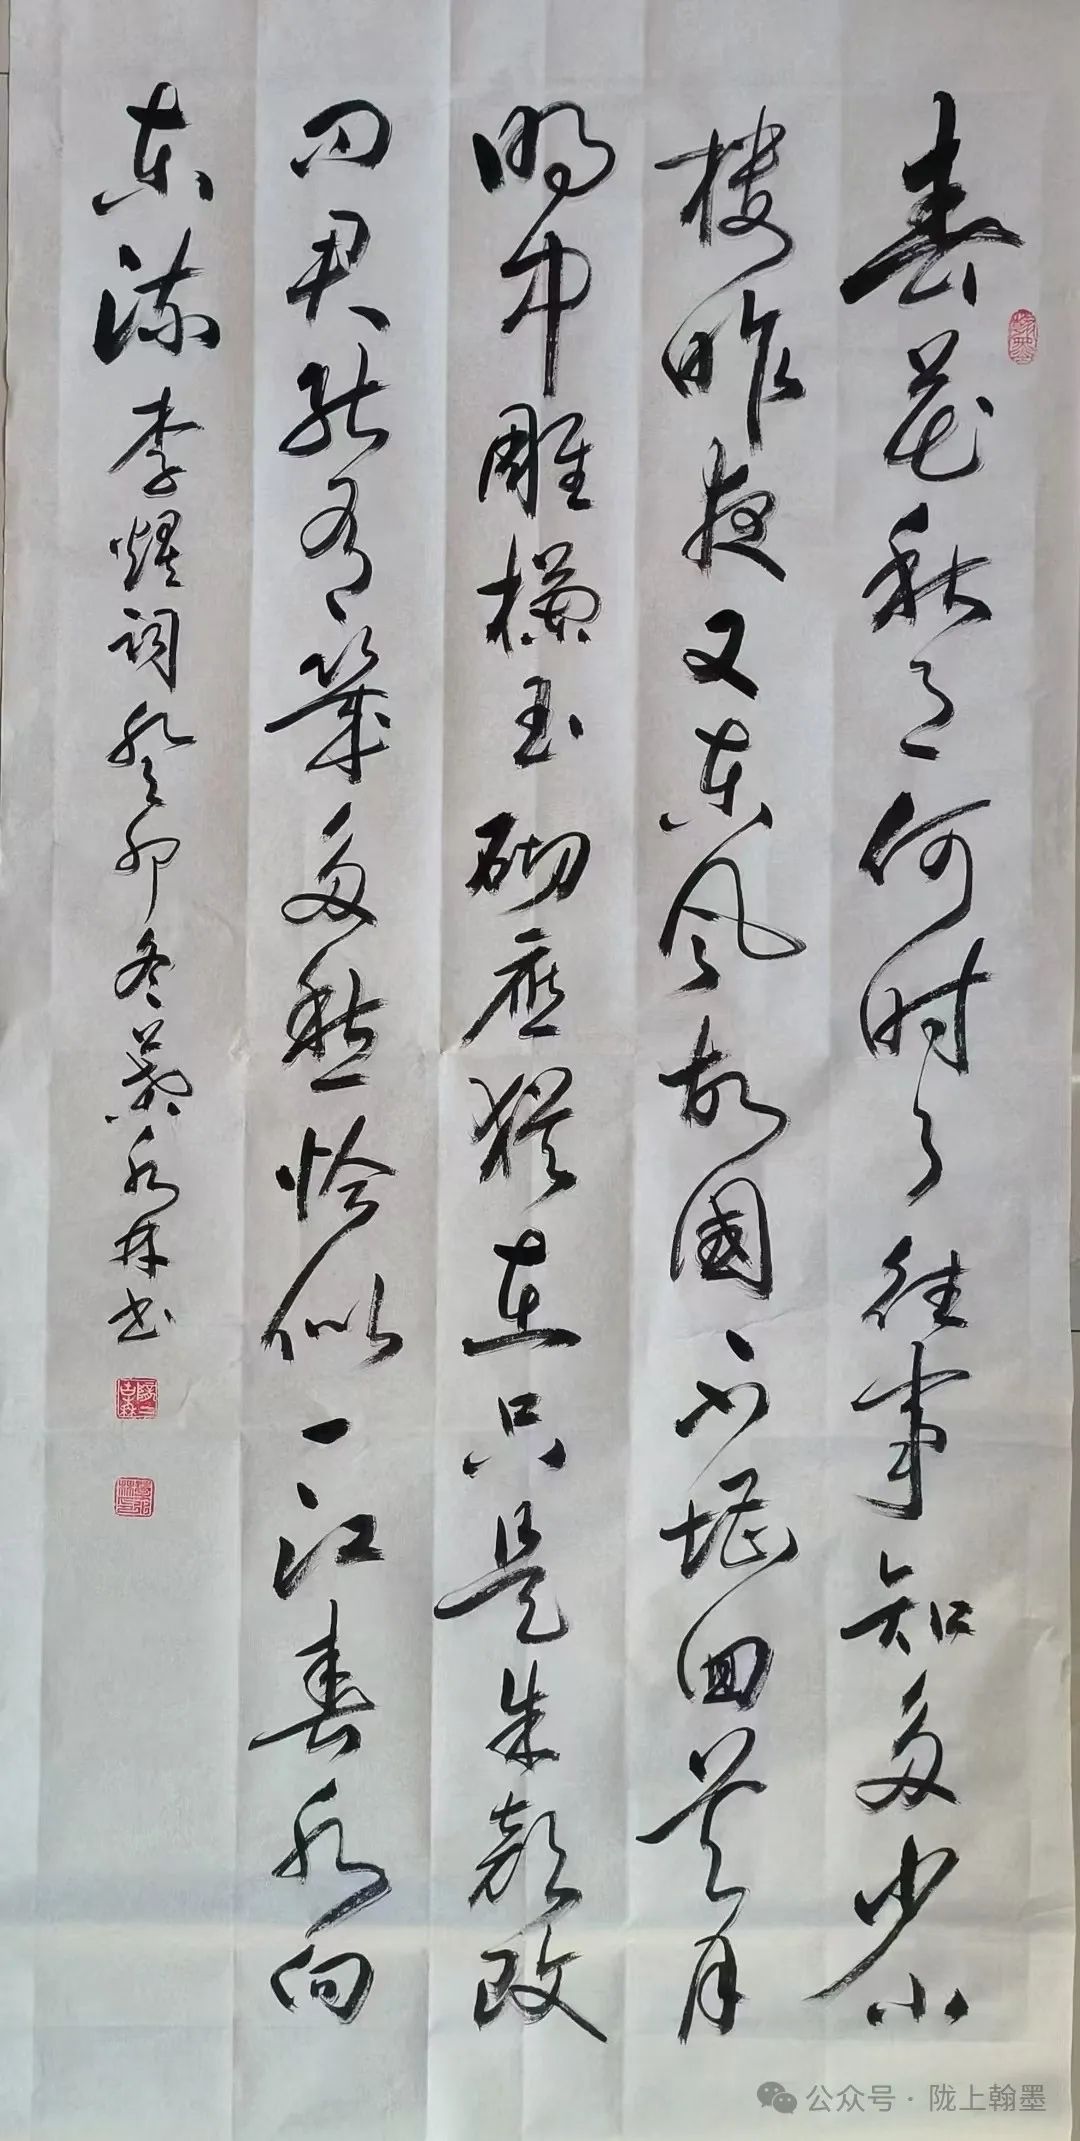 春花秋月何时了往事知多少小
楼昨夜又东风故國不堪回首月
明中雕欄玉砌应猶在只是朱颜改
问君能有幾多愁恰似一江春水向
东流李煜词癸卯冬永林书
公众号·陇上翰墨